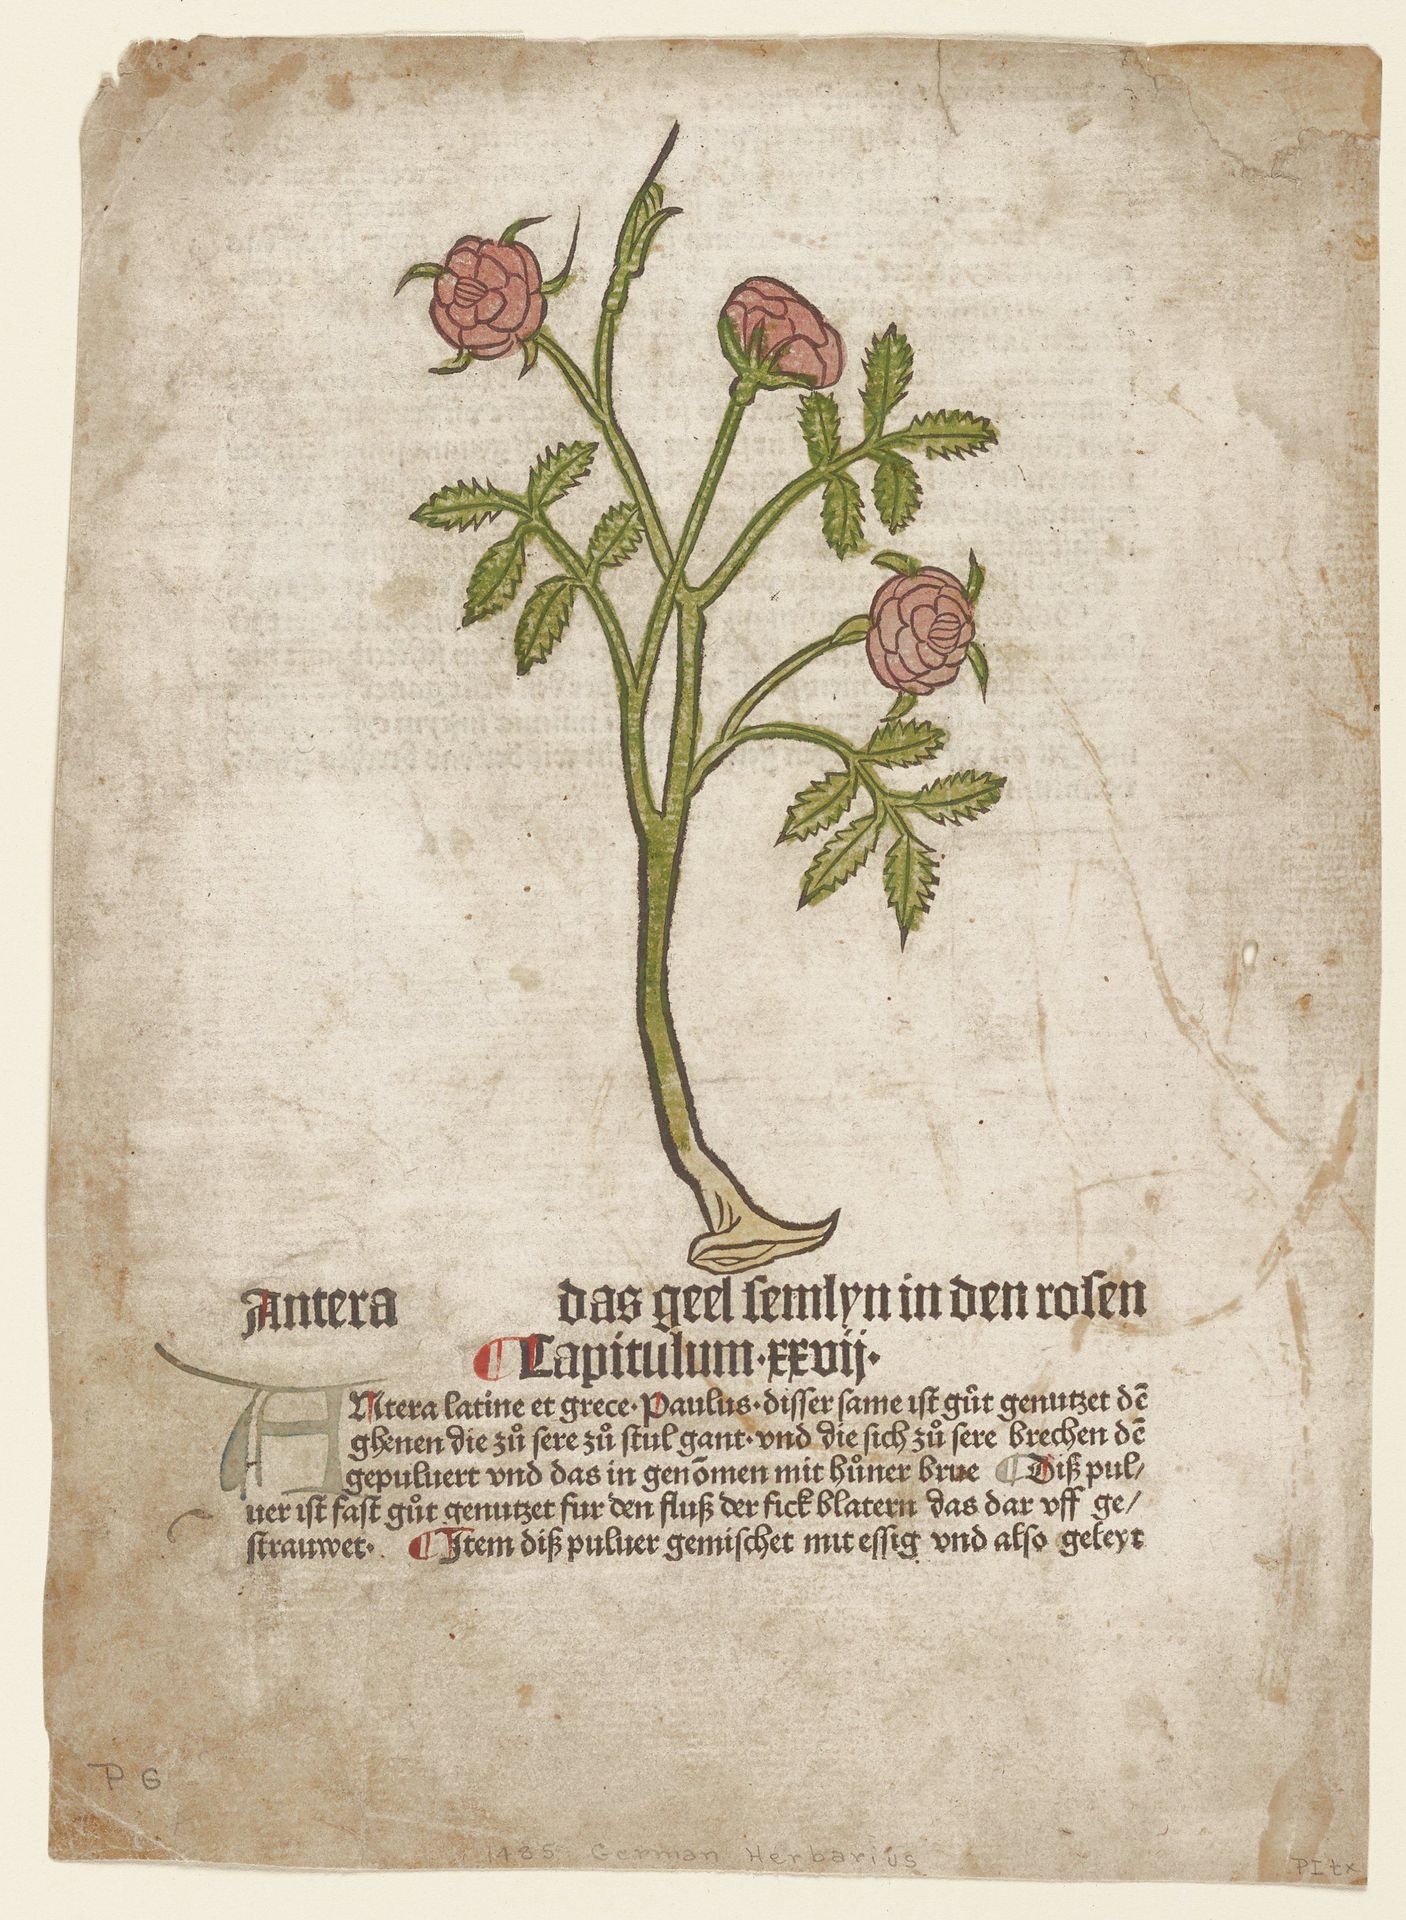 Antera das geel semlyn in den rosen
Capitulum·xxvij·
ANtera latine et grece·Paulus·disser same ist gůt genutzet dē
ghenen die zů sere zů stul gant·vnd die sich zů sere brechen dē
gepuluert vnd das in genōmen mit hůner brue Diß pul/
uer ist fast gůt genutzet fur den fluß der fick blatern das dar vff ge/
strauwet· Item diß puluer gemischet mit essig vnd also geleyt
P G
1485 German Herbarius